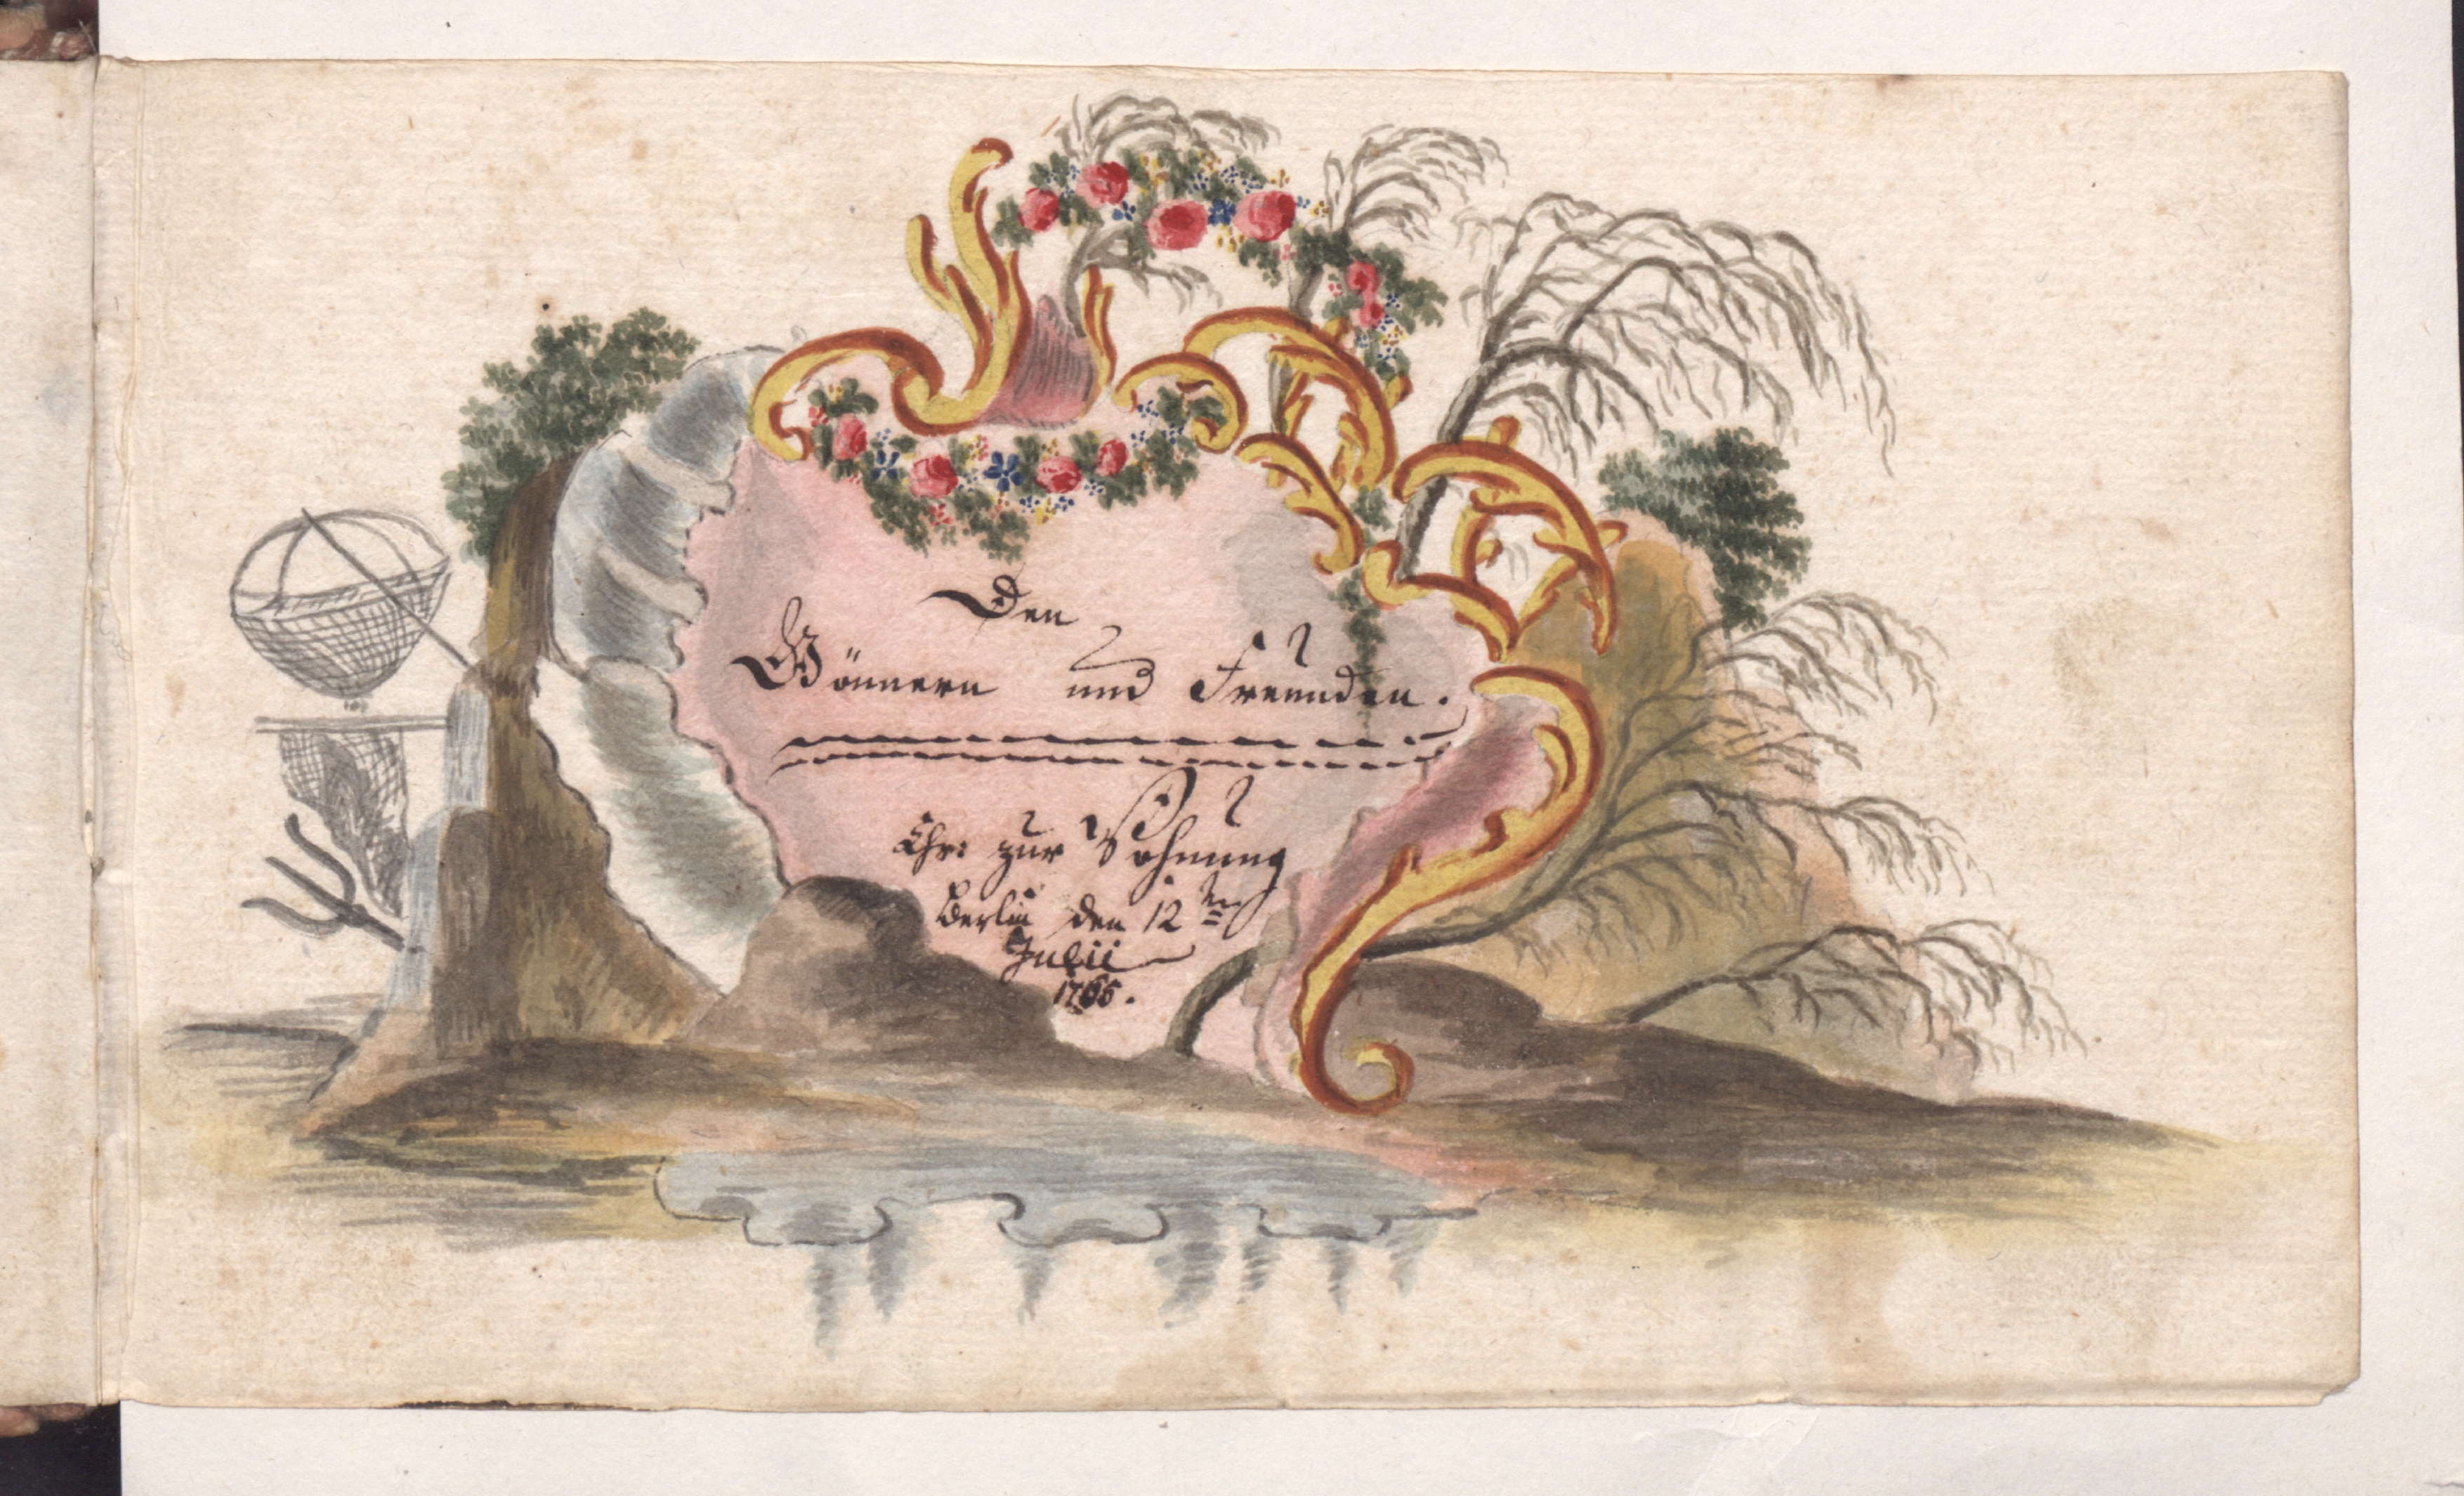 Den
Gönnern und Freunden.
Ehr: zur Wohnung
Berlin den 12ten
Julii
1766.